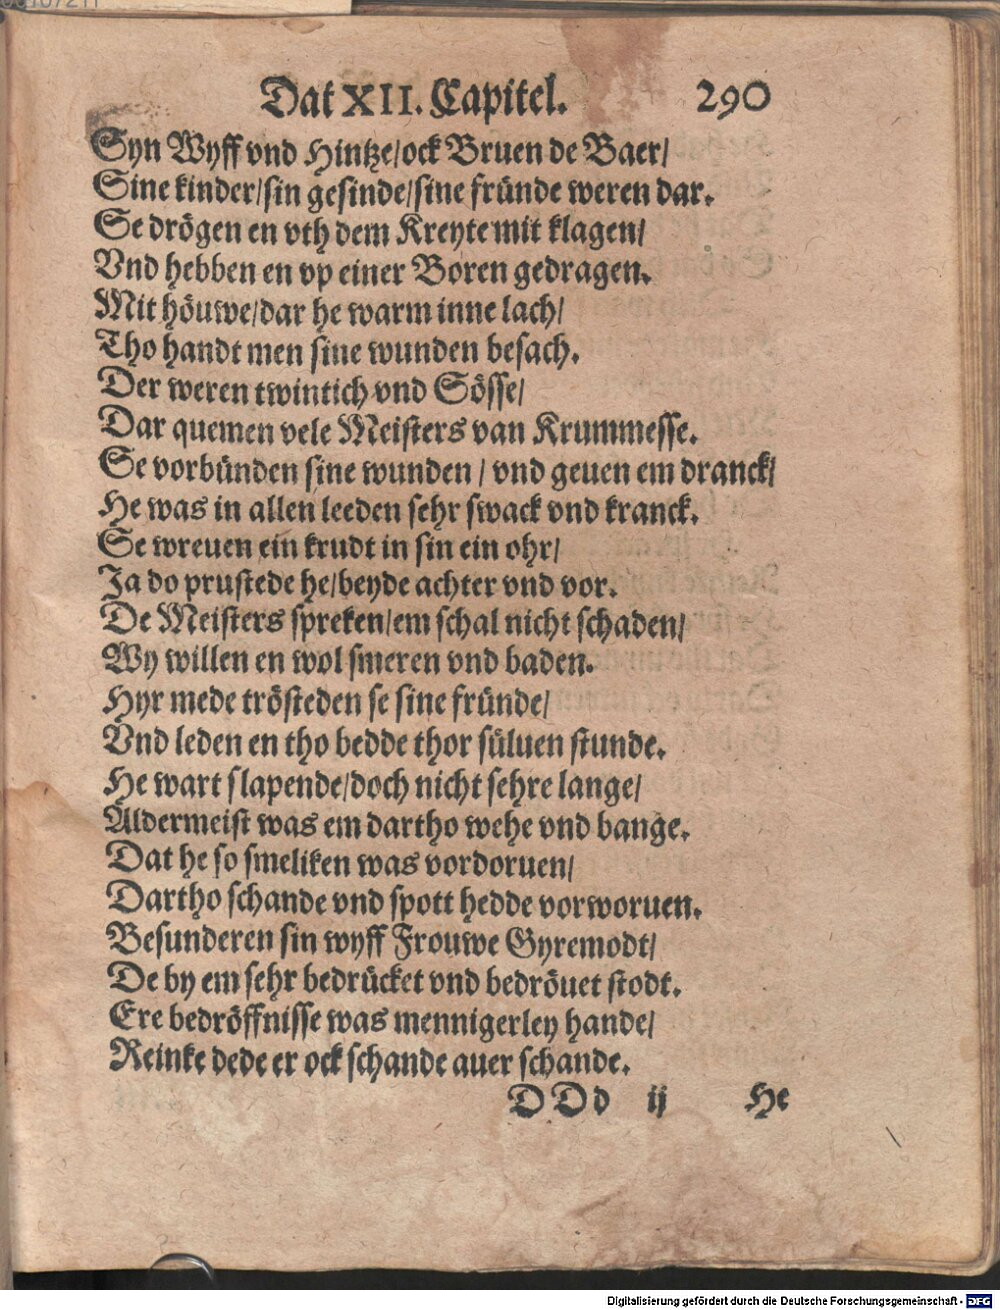 Dat XII. Capitel. 290
Syn Wyff vnd Hintze/ock Bruen de Baer/
Sine kinder/sin gesinde/sine fründe weren dar.
Se drögen en vth dem Kreyte mit klagen/
Vnd hebben en vp einer Boren gedragen.
Mit höuwe/dar he warm inne lach/
Tho handt men sine wunden besach.
Der weren twintich vnd Sösse/
Dar quemen vele Meisters van Krummesse.
Se vorbünden sine wunden / vnd geuen em dranck/
He was in allen leeden sehr swack vnd kranck.
Se wreuen ein krudt in sin ein ohr/
Ja do prustede he/beyde achter vnd vor.
De Meisters spreken/em schal nicht schaden/
Wy willen en wol smeren vnd baden.
Hyr mede trösteden se sine fründe/
Vnd leden en tho bedde thor süluen stunde.
He wart slapende/doch nicht sehre lange/
Aldermeist was em dartho wehe vnd bange.
Dat he so smeliken was vordoruen/
Dartho schande vnd spott hedde vorworuen.
Besunderen sin wyff Frouwe Gyremodt/
De by em sehr bedrücket vnd bedröuet stodt.
Ere bedröffnisse was mennigerley hande/
Reinke dede er ock schande auer schande.
DDd ij He
Digitalisierung gefördert durch die Deutsche Forschungsgemeinschaft - DFG